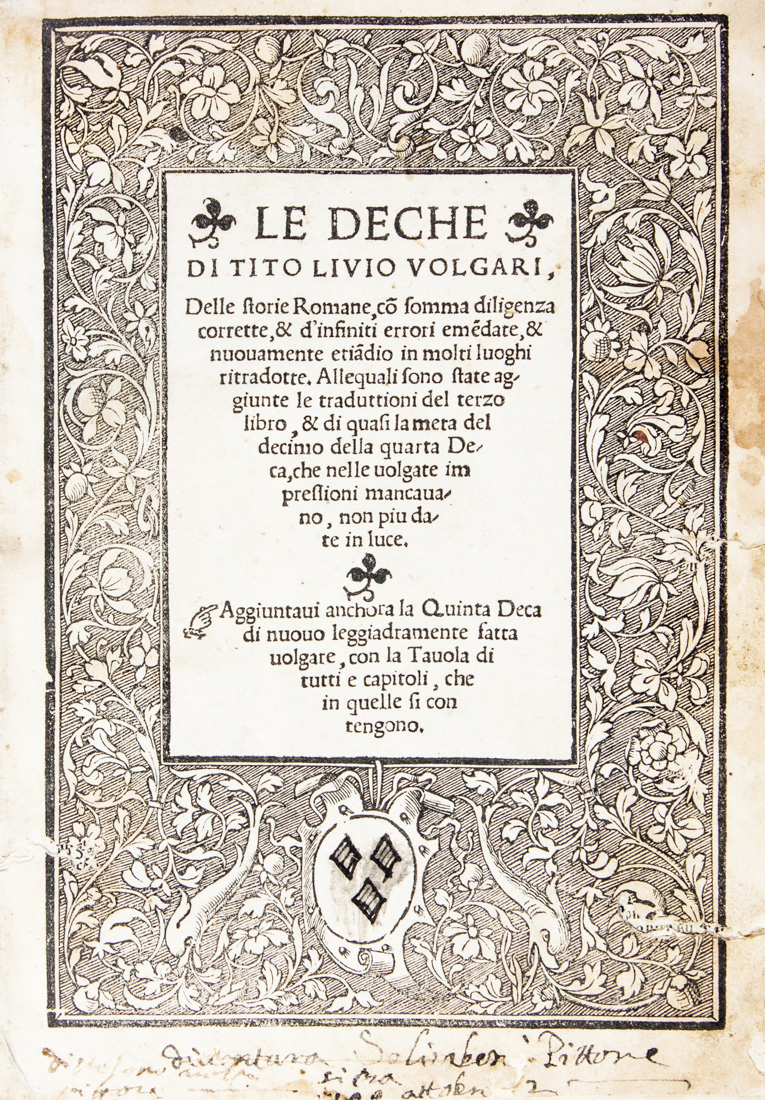 LE DECHE
DI TITO LIVIO VOLGARI,
Delle ſtorie Romane,cõ ſomma diligenza
corrette,& d'infiniti errori emẽdate,&
nuouamente etiãdio in molti luoghi
ritradotte. Allequali ſono ſtate ag-
giunte le traduttioni del terzo
libro, & di quaſi la meta del
decimo della quarta De-
ca,che nelle uolgate im
preſſioni mancaua-
no, non piu da-
te in luce.
☞Aggiuntaui anchora la Quinta Deca
di nuouo leggiadramente fatta
uolgare, con la Tauola di
tutti e capitoli, che
in quelle ſi con
tengono.
Solimben Pittore